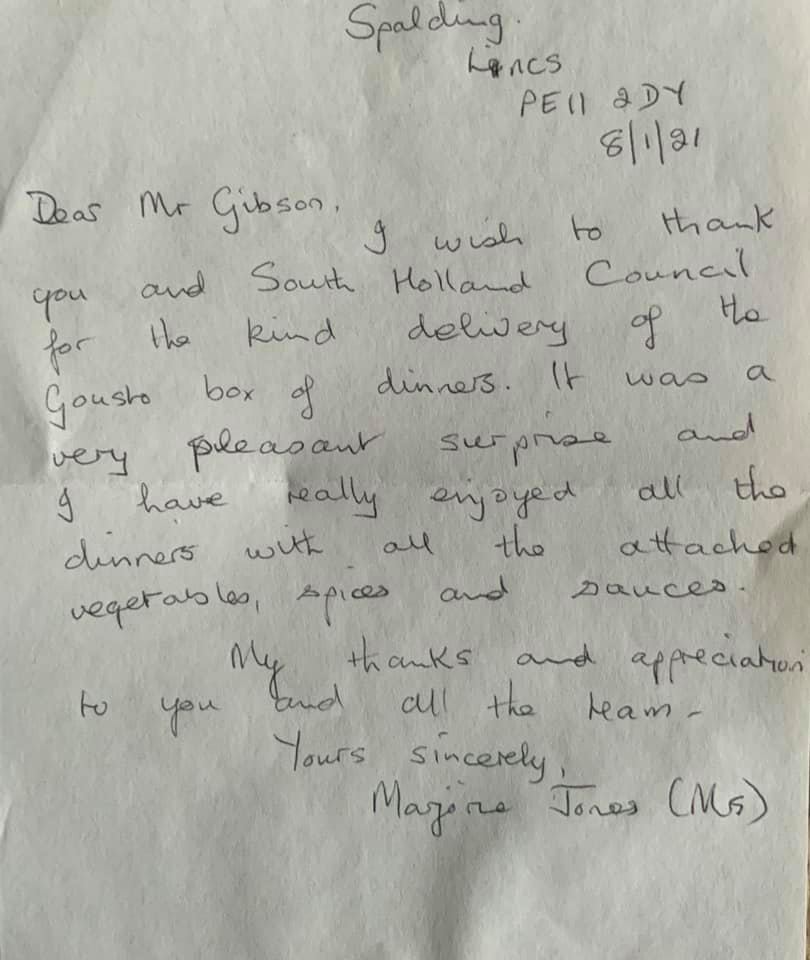 Spalding.
Lincs
PE11 2DY
8/1/21
Dear Mr Gibson,
I wish to thank
you and South Holland Council
for the kind delivery of the
Gousto box of dinners. It was a
very pleasant surprise and
I have really enjoyed all the
dinners with all the attached
vegetables, spices and sauces.
My thanks and appreciation
to you and all the team -
Yours sincerely,
Marjorie Jones (Ms)